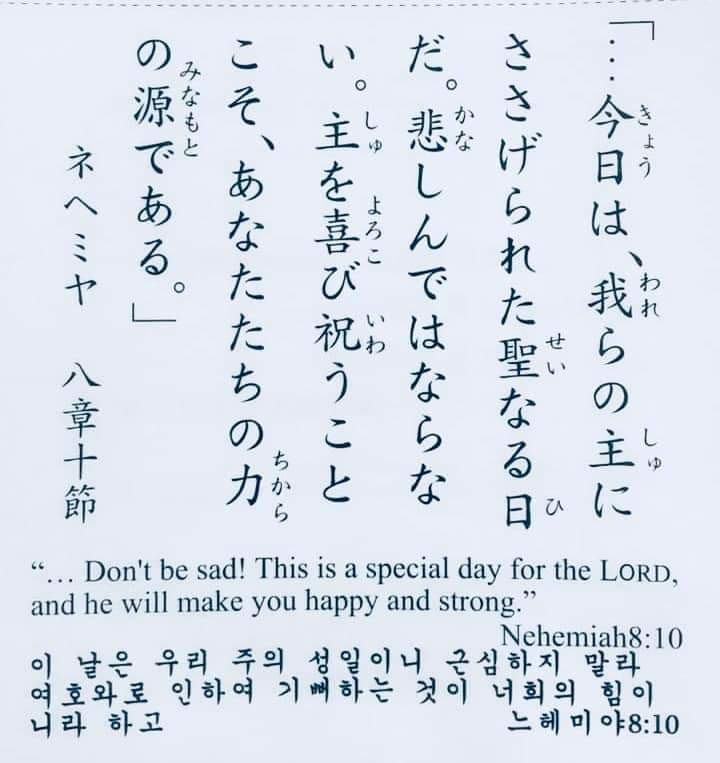 「…今日は、我らの主に
ささげられた聖なる日
だ。悲しんではならな
い。主を喜び祝うこと
こそ、あなたたちの力
の源である。」
ネヘミヤ 八章十節
“… Don't be sad! This is a special day for the LORD,
and he will make you happy and strong.”
Nehemiah8:10
이 날은 우리 주의 성일이니 근심하지 말라
여호와로 인하여 기뻐하는 것이 너희의 힘이
니라 하고 느헤미야8:10